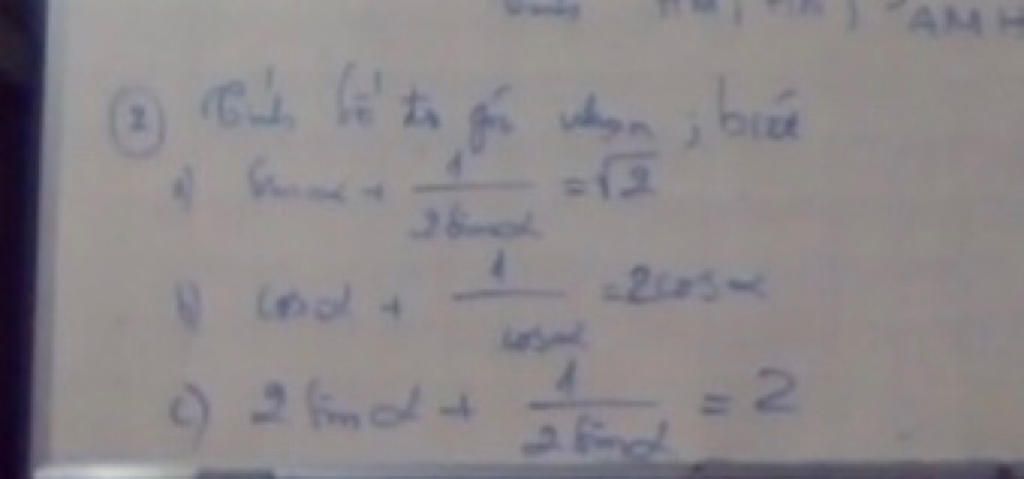 AMH
② Tính số đo góc nhọn, biết
a) sinα + 1/2sinα = √2
b) cosα + 1/cosα = 2cosα
c) 2sinα + 1/2sinα = 2